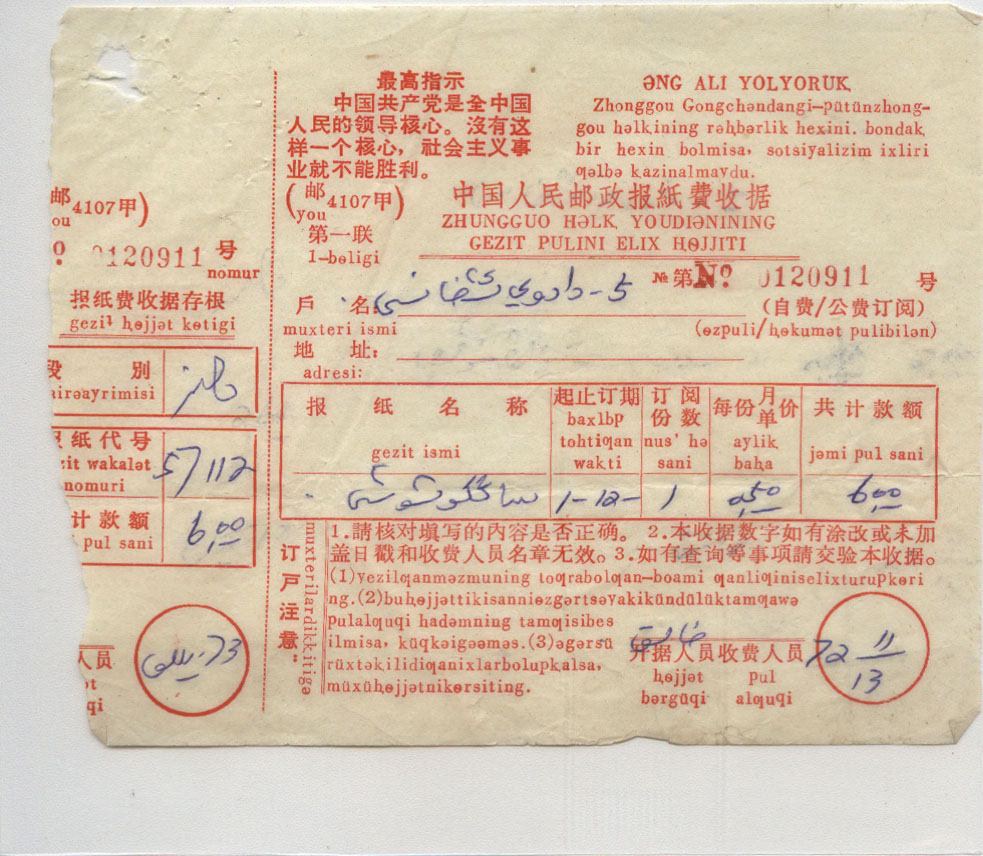 最高指示
中国共产党是全中国
人民的领导核心。沒有这
样一个核心，社会主义事
业就不能胜利。
ƏNG ALI YOLYORUK,
Zhonggou Gongchəndangi—pütünzhong-
gou həlk,ining rəⱨbərlik hexini. bondak,
bir hexin bolmisa, sotsiyalizim ixliri
ƣəlbə k,azinalmaydu.
邮
you
4107甲)
№ 0120911 号
nomur
报纸费收据存根
gezit ⱨɵjjət kɵtigi
段 别
airəayrimisi
纸代号
zit wakalət
nomuri
57/112
计款额
pul sani
6,00
人员
ət
qi
73
(邮 4107甲)
you
第一联
1-bɵligi
中国人民邮政报紙費收据
ZHUNGGUO HƏLK, YOUDIƏNINING
GEZIT PULINI ELIX HɵJJITI
№ 第 No. 0120911 号
戶 名:
muxteri ismi
(自费/公费订阅)
(ɵzpuli/ⱨɵkumət pulibilən)
地 址:
adresi:
报 纸 名 称
gezit ismi
起止订期
baxlbp
tohtiƣan
wakti
订阅
份数
nus' hə
sani
每份月
单价
aylik
baⱨa
共计款额
jəmi pul sani
1-12-
1
0,50
6,00
订户注意:
muxterilardikkitigə
1.請核对填写的内容是否正确。2.本收据数字如有涂改或未加
盖日戳和收费人员名章无效。3.如有查询等事项請交验本收据。
(1)yezilƣanməzmuning toƣrabolƣan—boami ƣanliƣiniselixturupkɵri
ng.(2)buⱨɵjjəttikisanniɵzgərtsəyakikündülüktamƣawə
pulalƣuqi hadəmning tamƣisibes
ilmisa, küqkəigəəməs.(3)əgərsü
rüxtəkilidiƣanixlarbolupkalsa,
müxüⱨɵjjətnikɵrsiting.
开据人员
ⱨɵjjət
bərgüqi
收费人员
pul
alƣuqi
72 11
13